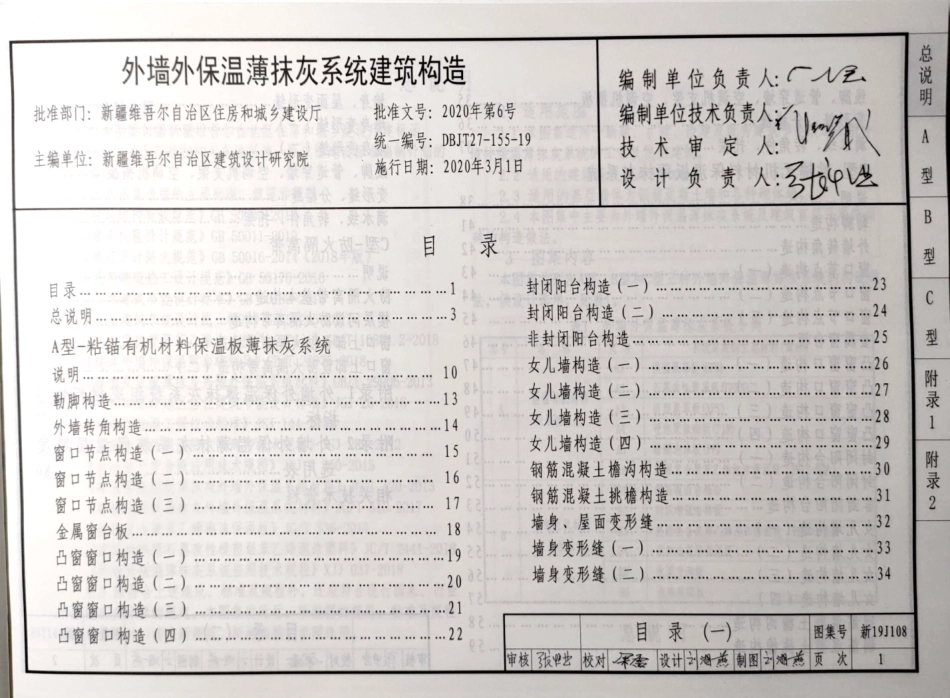 外墙外保温薄抹灰系统建筑构造
批准部门: 新疆维吾尔自治区住房和城乡建设厅
批准文号: 2020年第6号
统一编号: DBJT27-155-19
主编单位: 新疆维吾尔自治区建筑设计研究院
施行日期: 2020年3月1日
编制单位负责人:
编制单位技术负责人:
技术审定人:
设计负责人:
目 录
目录……1
总说明……3
A型-粘锚有机材料保温板薄抹灰系统
说明……10
勒脚构造……13
外墙转角构造……14
窗口节点构造(一)……15
窗口节点构造(二)……16
窗口节点构造(三)……17
金属窗台板……18
凸窗窗口构造(一)……19
凸窗窗口构造(二)……20
凸窗窗口构造(三)……21
凸窗窗口构造(四)……22
封闭阳台构造(一)……23
封闭阳台构造(二)……24
非封闭阳台构造……25
女儿墙构造(一)……26
女儿墙构造(二)……27
女儿墙构造(三)……28
女儿墙构造(四)……29
钢筋混凝土檐沟构造……30
钢筋混凝土挑檐构造……31
墙身、屋面变形缝……32
墙身变形缝(一)……33
墙身变形缝(二)……34
目 录 (一)
图集号 新19J108
审核 校对 设计 制图 页 次 1
总说明
A型
B型
C型
附录1
附录2